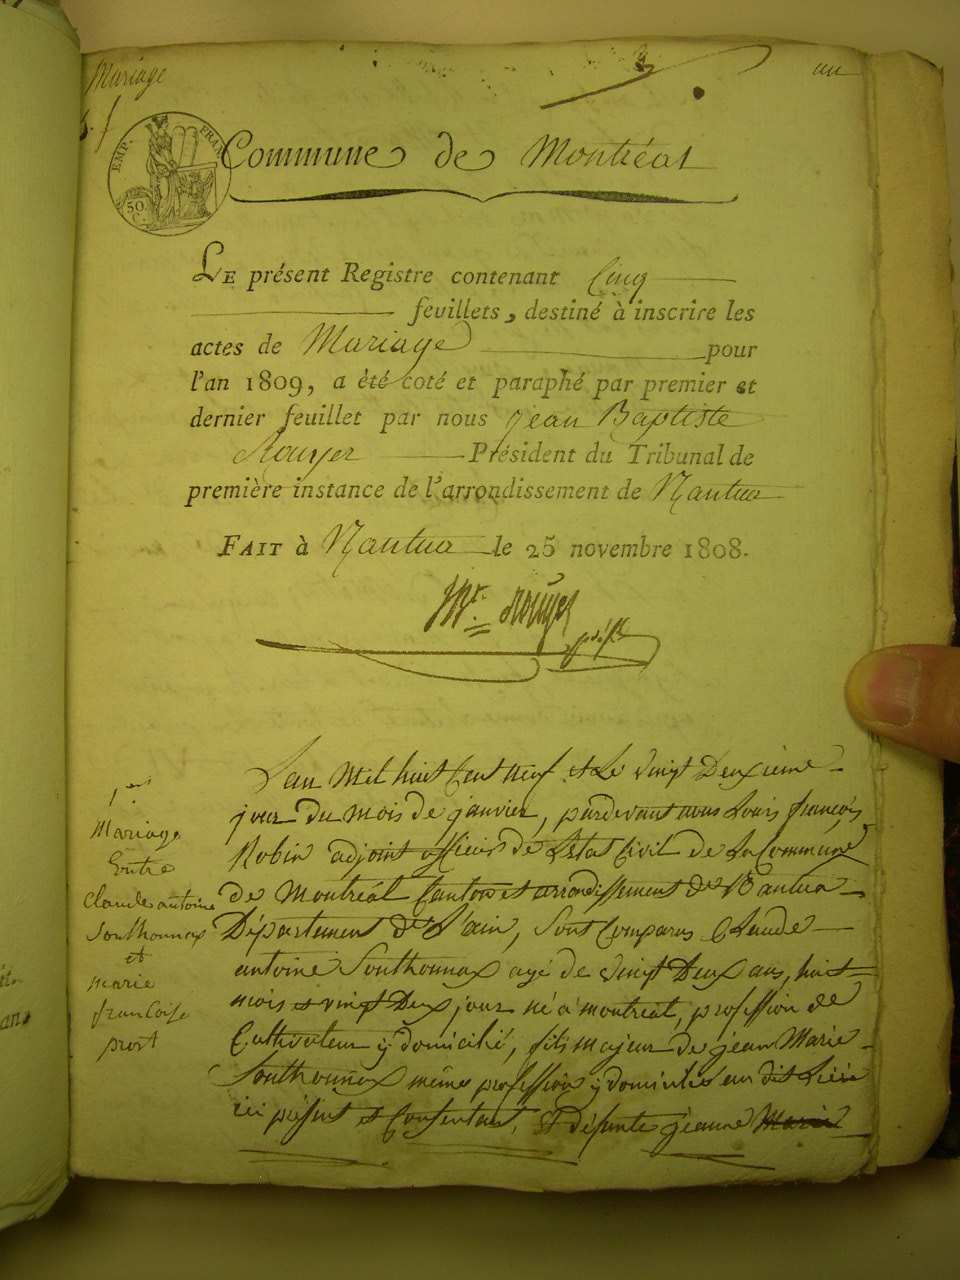 Mariage
un
EMP. FRAN
50.
C.
Commune de Montréal
LE présent Registre contenant Cinq
feuillets, destiné à inscrire les
actes de Mariage pour
l'an 1809, a été coté et paraphé par premier et
dernier feuillet par nous Jean Baptiste
Rouyer Président du Tribunal de
première instance de l'arrondissement de Nantua
FAIT à Nantua le 25 novembre 1808.
Rouyer
présdt
1er
Mariage
Entre
Claude antoine
Southonnax
et
marie
francoise
prost
L'an Mil huit Cent Neuf et Le vingt Deuxième
jour du mois de janvier, pardevant nous Louis françois
Robin adjoint officier de L'Etat Civil de La Commune
de Montréal Canton et arrondissement de Nantua
Département de L'ain, Sont Comparus Claude
antoine Southonnax agé de vingt Deux ans, huit
mois et vingt Deux jour né a montréal, profession de
Cultivateur y domicilié, fils majeur de jean Marie
Southonnax même profession y domicilié au dit Lieu
ici présent et Consentant, Et défunte jeanne Marie